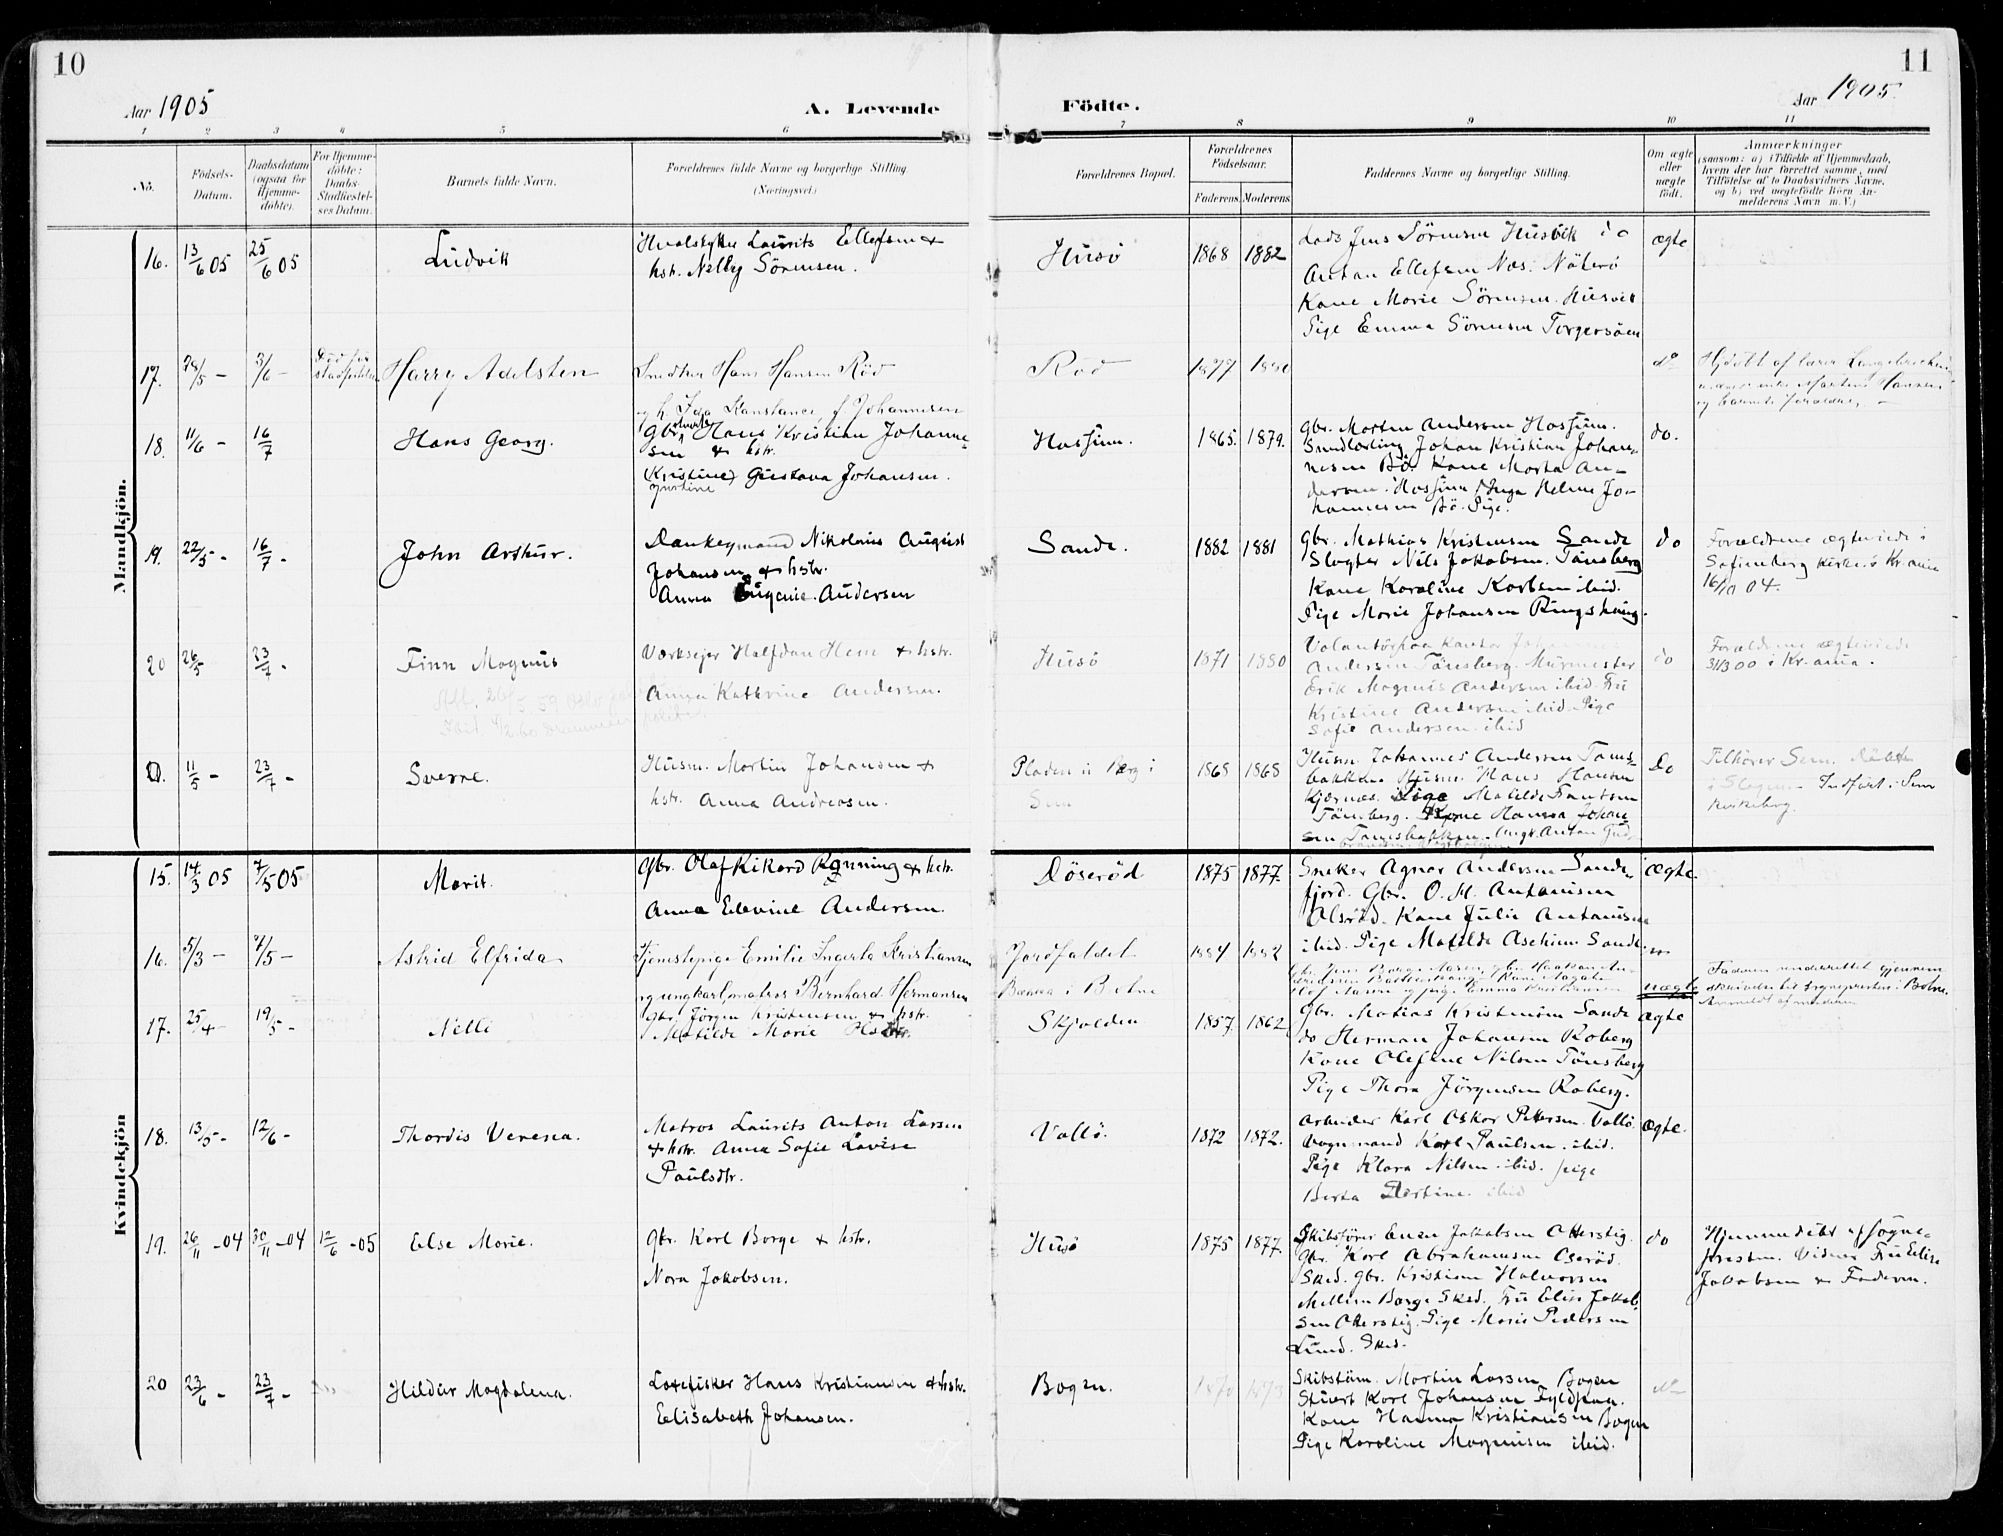 10
11
Aar 1905
A. Levende
Födte.
Aar 1905.
1 2 3 4 5 6 7 8 9 10 11
No.
Födsels-
Datum.
Daabsdatum
(ogsaa for
Hjemme-
döbte).
For Hjemme-
döbte:
Daabs-
Stadfæstel-
ses Datum.
Barnets fulde Navn.
Forældrenes fulde Navne og borgerlige Stilling.
(Næringsvei.)
Forældrenes Bopæl.
Forældrenes
Födselsaar.
Faderens.
Moderens.
Faddernes Navne og borgerlige Stilling.
Om ægte
eller
uægte
födt.
Anmærkninger
(saasom: a) i Tilfælde af Hjemmedaab,
hvem der har forrettet samme, med
Tilföielse af to Daabsvidners Navne,
og b) ved uægtefödte Börn An-
melderens Navn m. V.)
Mandkjön.
16. 13/6 05 25/6 05 Ludvik
Hvalskytter Laurits Ellefsen &
hstr. Nelly Sörensen.
Husö 1868 1882
Lods Jens Sörensen Husvik
Anton Ellefsen Nes. Nöterö
Kone Marie Sörensen. Husvik
Pige Emma Sörensen Torgersöen
ægte
17. 28/5 – 3/6 – Harry Adelsten
Hans Hansen Röd
Johannesen
Röd 1877
do
18. 11/6 – 16/7 Hans Georg.
Gbr. Hans Kristian Johanne-
sen & hstr.
(Kristine) Gustava Johansen.
1865. 1879.
Gbr. Morten Andersen
Johan Kristian Johan-
nesen Bö. Kone Marta An-
dersen. Inga Helene Jo-
hannesen Bö. Pige.
do.
19. 22/5 – 16/7 – John Arthur.
Donkeymand Nikolaus August
Johansen & hstr.
Anna Eugenie Andersen
Sande. 1882 1881
Gbr. Mathias Kristensen Sande
Slagter Nils Jakobsen. Tönsberg
Kone Karoline Karlsen ibid.
Pige Marie Johansen Ringshaug.
do
Forældrene ægteviede i
Sofienberg Kirke i Kr.ania
16/10 04.
20 26/5 23/7 – Finn Magnus
Værkseier Halfdan Hem & hstr.
Anna Kathrine Andersen.
Husö 1871 1880
Andersen Tönsberg. Murmester
Erik Magnus Andersen ibid. Fru
Kristine Andersen ibid. Pige
Sofie Andersen ibid
do
Forældrene ægteviede
31/3 00 i Kr.ania.
0. 11/5 – 23/7 – Sverre.
Husm. Martin Johansen &
hstr. Anna Andreasen.
Sem
1865 1868
Husm. Johannes Andersen Tams-
bakken. Husm. Hans Hansen
Kjærnes. Pige Matilde Frantsen
Tönsberg. Kone Hanna Johan-
sen Tamsbakken.
Do
Tilhører Sem. Döbt
i Slagen. – Indfört i Sem
Kirkebog.
Kvindekjön
15. 14/3 05 7/5 05 Marit.
Gbr. Olaf Rikard Rönning & hstr.
Anna Edevine Andersen.
Döseröd 1875 1877.
Sneker Agner Andersen Sande-
fjord. Gbr. O. M. Antonisen
Olsröd. Kone Julie Antonisen
ibid. Pige Matilde Aschim. Sande-
ægte.
16. 5/3 – 7/5 – Astrid Elfrida
Tjenestepige Emilie Ingerta Kristiansen
og ungkarl, matros Bernhard Hermansen
Jordfaldet
i Botne
1884 1882
uægte
Faderen underrettet gjennem
skrivelse til sognepresten i Botne.
Anmeldt af moderen
17. 25/4 – 19/5 – Nelli
Gbr. Jörgen Kristensen & hstr.
Matilde Marie
Skjolden 1857 1862
Gbr. Matias Kristensen Sande
do Herman Johansen Roberg
Kone Olefine Nilsen Tönsberg
Pige Thora Jörgensen Roberg.
ægte
18. 13/5 – 12/6 – Thordis Verena.
Matros Laurits Anton Larsen
& hstr. Anna Sofie Lovise
Paulsdtr.
Vallö. 1872 1872.
Arbeider Karl Oskar Pettersen Vallö.
Vognmand Karl Paulsen ibid.
Pige Klara Nilsen. ibid. pige
Berta ibid
ægte.
19. 26/11 – 04 30/11 – 04 12/6 – 05 Else Marie.
Gbr. Karl Borge & hstr.
Nora Jakobsen.
Husö 1875 1877.
Skibsförer Enen Jakobsen Oterstig.
Gbr. Karl Abrahamsen Oseröd.
Sked. Gbr. Kristian Halvorsen
Mellem Borge Sked. Fru Elise Jakob-
sen Oterstig. Pige Marie Pedersen
Lund. Sked.
do
Hjemmedöbt af Sogne-
presten. Vidner Fru Elise
Jakobsen & Faderen.
20 23/6 – 23/7 – Hildur Magdalena.
Hans Kristiansen & hstr.
Elisabeth Johansen.
Bogen. 1870 1873
Skibstöm. Martin Larsen Bogen
Stuert Karl Johansen Fyldpaa.
Kone Hanna Kristiansen Bogen
Pige Karoline Magnusen ibid.
do